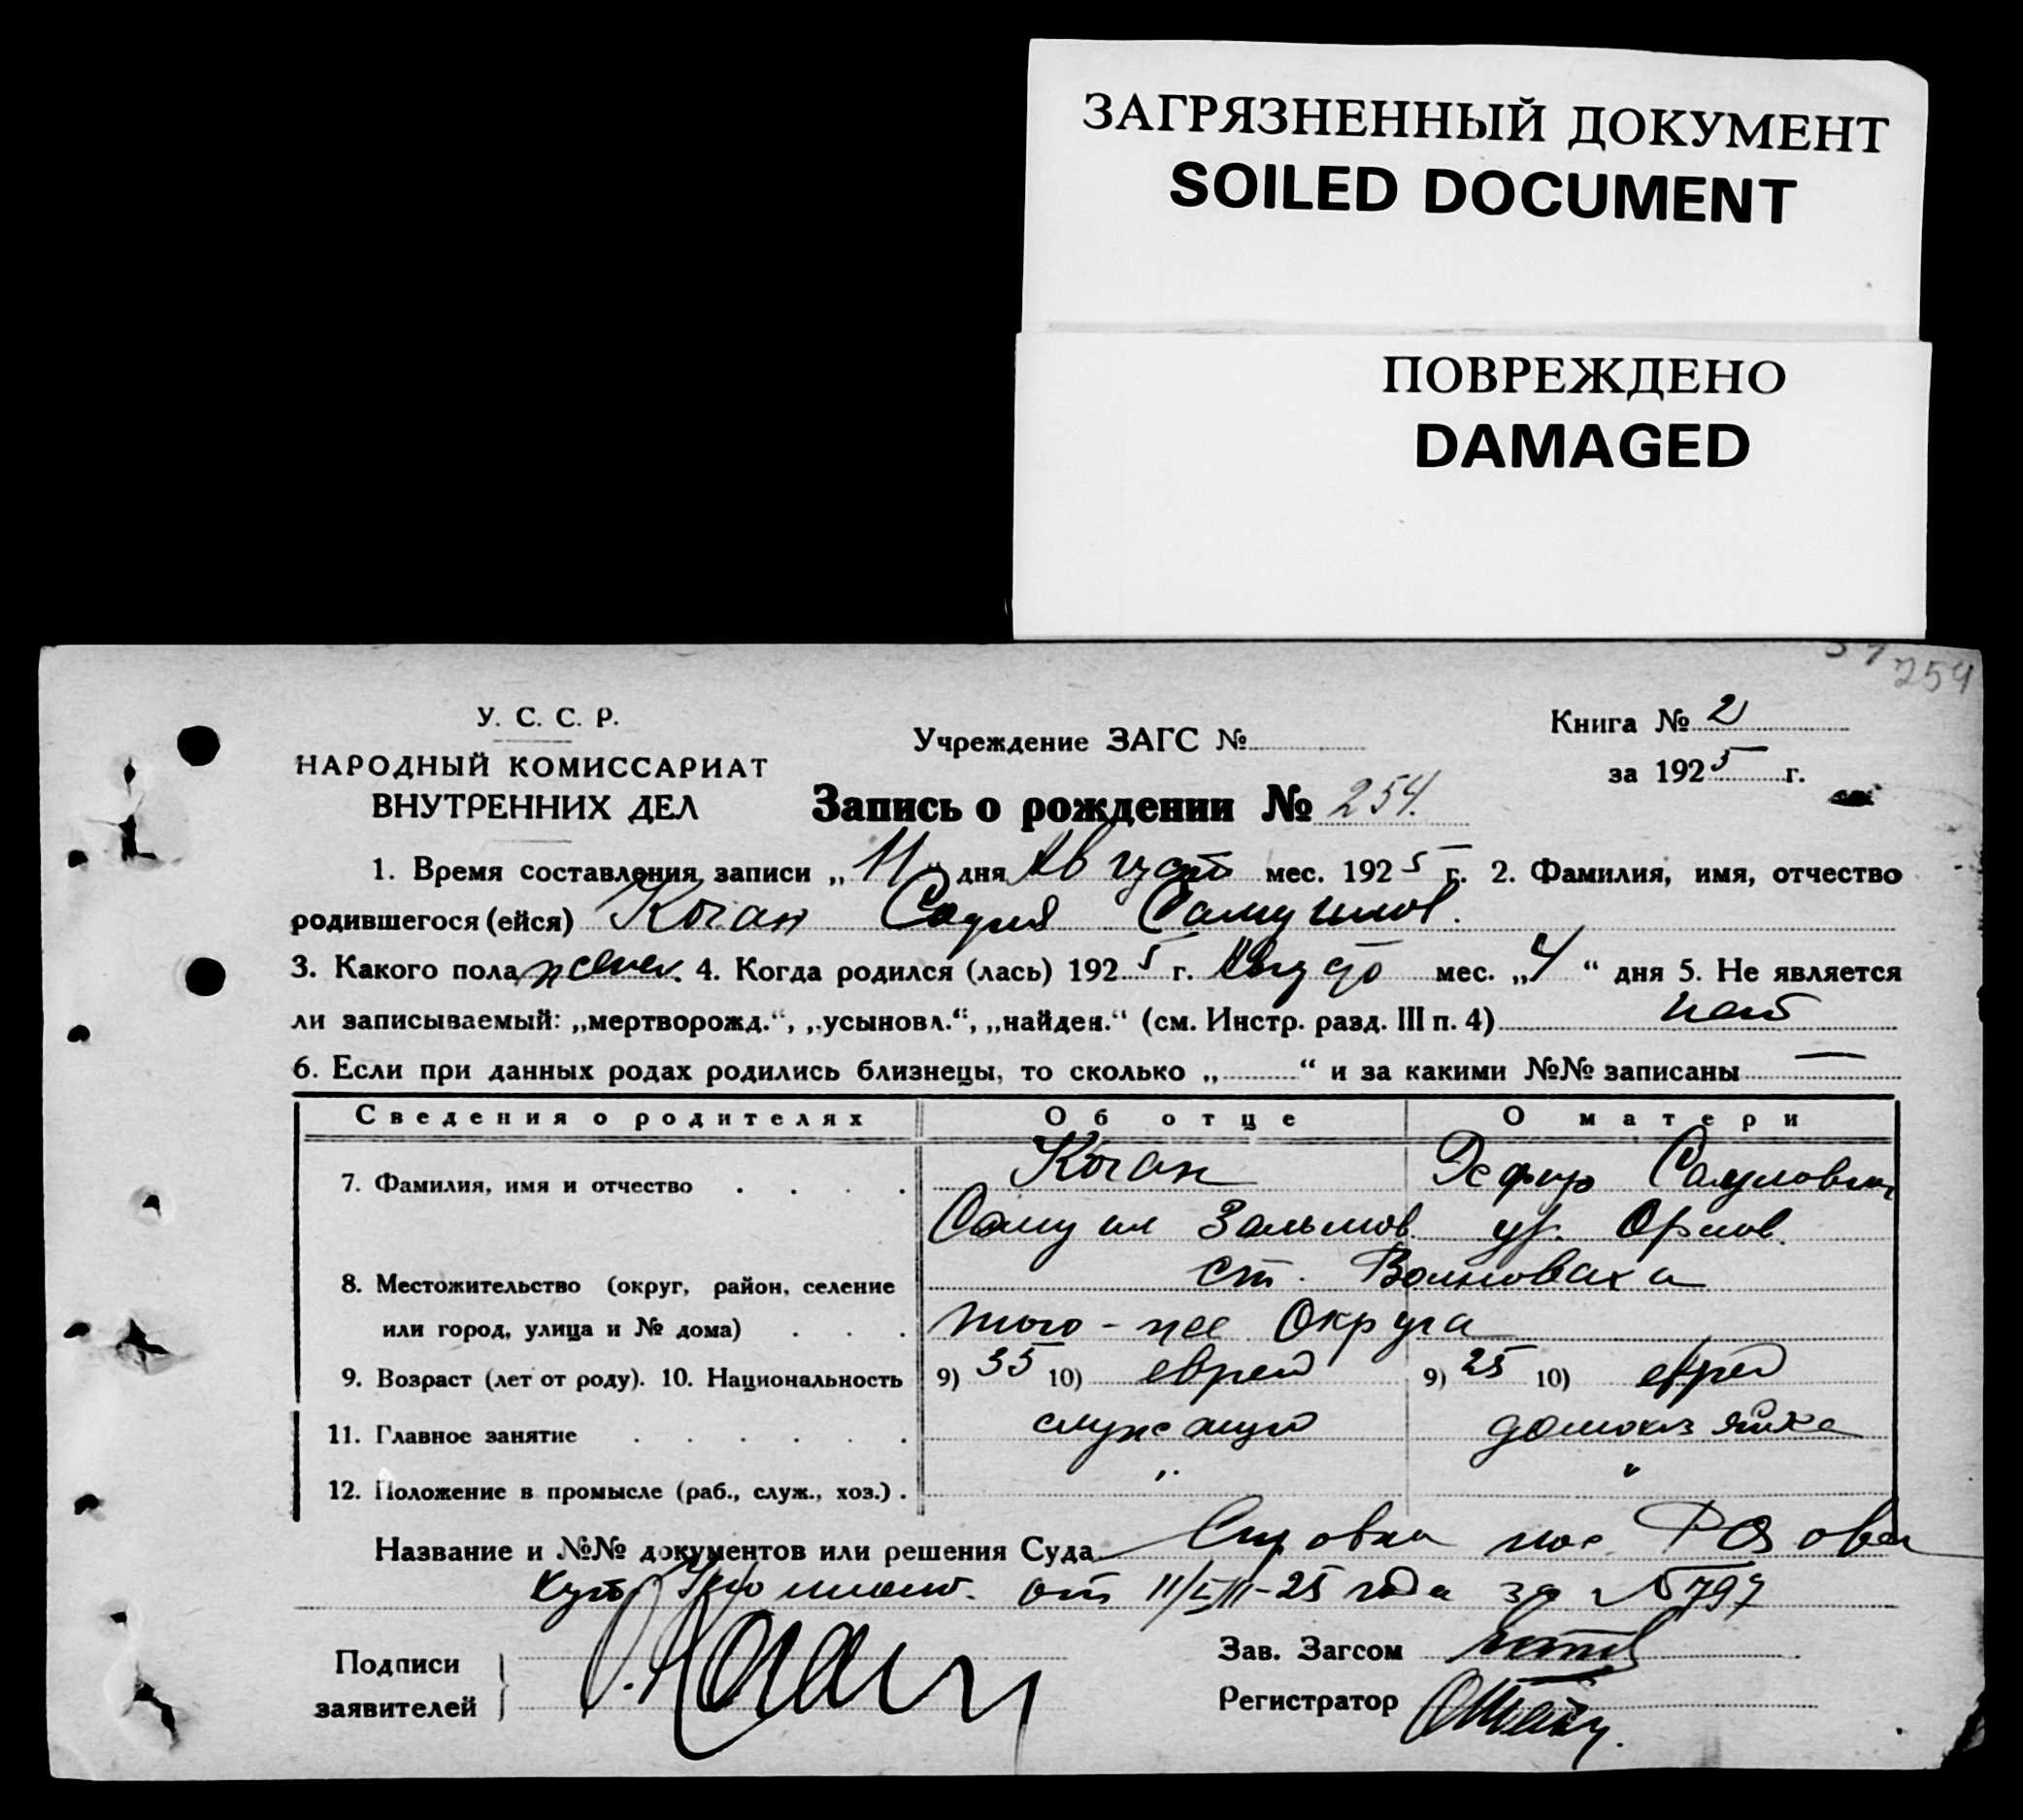 ЗАГРЯЗНЕННЫЙ ДОКУМЕНТ
SOILED DOCUMENT
ПОВРЕЖДЕНО
DAMAGED
254
У. С. С. Р.
НАРОДНЫЙ КОМИССАРИАТ
ВНУТРЕННИХ ДЕЛ
Учреждение ЗАГС №
Книга № 2
за 1925 г.
Запись о рождении № 254.
1. Время составления записи „11“ дня Август мес. 1925 г. 2. Фамилия, имя, отчество
родившегося (ейся) Коган София Самуилов.
3. Какого пола женск. 4. Когда родился (лась) 1925 г. Август мес. „4“ дня 5. Не является
ли записываемый: „мертворожд.“, „усыновл.“, „найден.“ (см. Инстр. разд. III п. 4) нет
6. Если при данных родах родились близнецы, то сколько „ “ и за какими №№ записаны —
Сведения о родителях Об отце О матери
7. Фамилия, имя и отчество Коган
Самуил Зальмов. ур. Орлов.
8. Местожительство (округ, район, селение ст. Волноваха
или город, улица и № дома) того-же Округа
9. Возраст (лет от роду). 10. Национальность 9) 35 10) еврей 9) 25 10) еврей
11. Главное занятие служащий домохозяйка
12. Положение в промысле (раб., служ., хоз.) . „ „
Название и №№ документов или решения Суда
от 11/VIII-25 года за № 797
Подписи
заявителей
Коган
Зав. Загсом
Регистратор